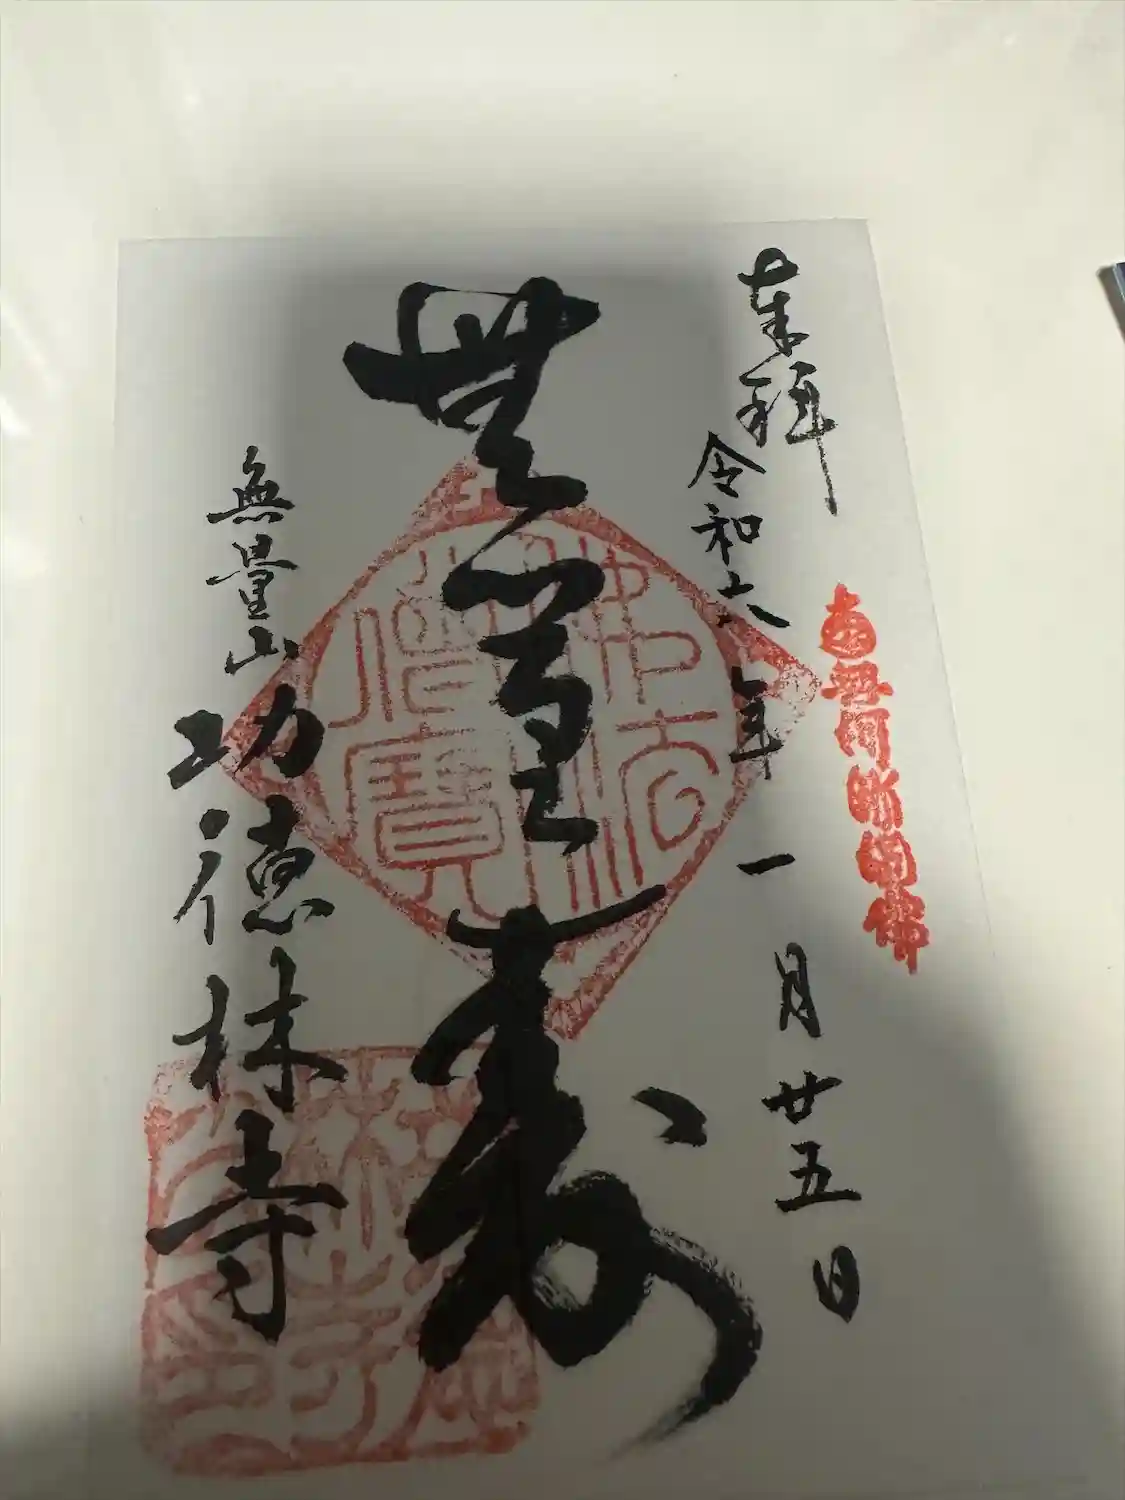 奉拝
令和六年一月廿五日
南無阿彌陀佛
無量壽
佛法僧寶
無量山
功徳林寺